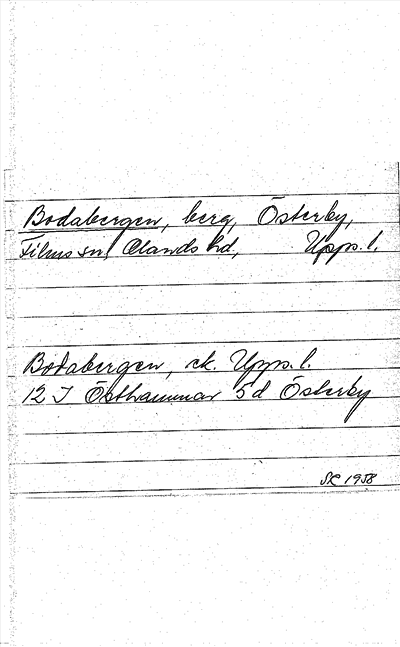 Bodabergen, berg, Österby,
Films sn, Olands hd, Upps. l.
Bodabergen, ek. Upps. l.
12 I Östhammar 5d Österby
SR 1958